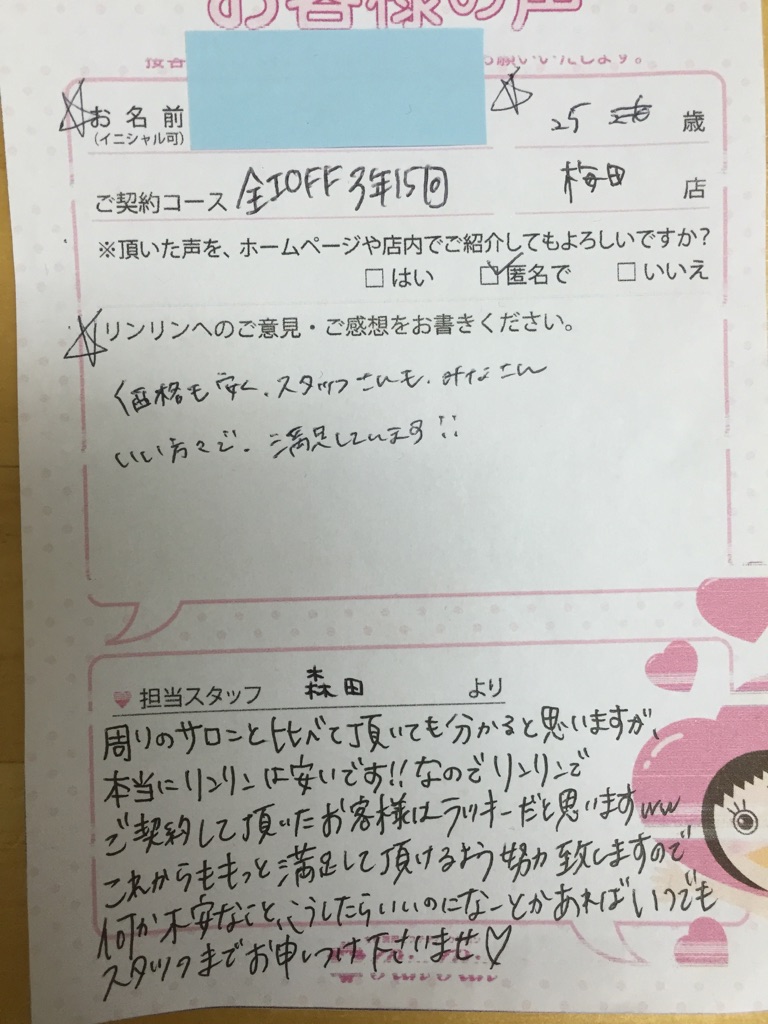 お客様の声
お願いいたします。
お名前
(イニシャル可)
25 歳
ご契約コース 全工OFF 3年15回
梅田 店
※頂いた声を、ホームページや店内でご紹介してもよろしいですか?
□はい ☑匿名で □いいえ
リンリンへのご意見・ご感想をお書きください。
価格も安く、スタッフさんも、みなさん
いい方々で、満足しています!!
担当スタッフ 森田 より
周りのサロンと比べて頂いても分かると思いますが、
本当にリンリンは安いです!!なのでリンリンで
ご契約して頂いたお客様はラッキーだと思いますww
これからももっと満足して頂けるよう努力致しますので
何か不安なこと、こうしたらいいのになーとかあればいつでも
スタッフまでお申しつけ下さいませ♡